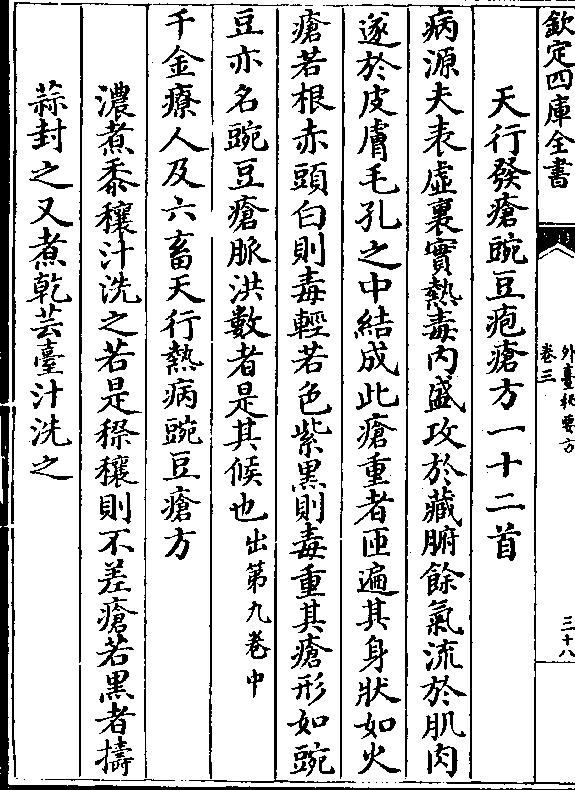 欽定四庫全書
外臺秘要方
卷三
三十八
天行發瘡豌豆疱瘡方一十二首
病源夫表虛裏實熱毒内盛攻於藏腑餘氣流於肌肉
遂於皮膚毛孔之中結成此瘡重者匝遍其身狀如火
瘡若根赤頭白則毒輕若色紫黑則毒重其瘡形如豌
豆亦名豌豆瘡脈洪數者是其候也出第九卷中
千金療人及六畜天行熱病豌豆瘡方
濃煮黍穰汁洗之若是穄穰則不差瘡若黑者擣
蒜封之又煮乾芸臺汁洗之